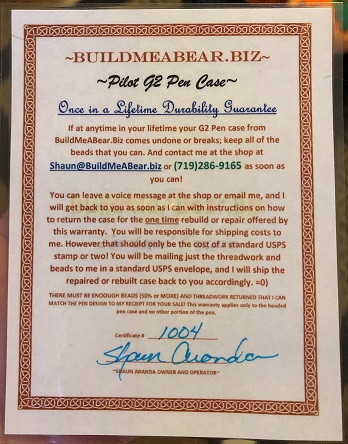 ~BUILDMEABEAR.BIZ~
~Pilot G2 Pen Case~
Once in a Lifetime Durability Guarantee
If at anytime in your lifetime your G2 Pen case from
BuildMeABear.Biz comes undone or breaks; keep all of the
beads that you can. And contact me at the shop at
Shaun@BuildMeABear.biz or (719)286-9165 as soon as
you can!
You can leave a voice message at the shop or email me, and I
will get back to you as soon as I can with instructions on how
to return the case for the one time rebuild or repair offered by
this warranty. You will be responsible for shipping costs to
me. However that should only be the cost of a standard USPS
stamp or two! You will be mailing just the threadwork and
beads to me in a standard USPS envelope, and I will ship the
repaired or rebuilt case back to you accordingly. =0)
THERE MUST BE ENOUGH BEADS (50% or MORE) AND THREADWORK RETURNED THAT I CAN
MATCH THE PEN DESIGN TO MY RECEIPT FOR YOUR SALE! This warranty applies only to the beaded
pen case and no other portion of the pen.
Certificate # 1004
Shaun Aranda
~SHAUN ARANDA OWNER AND OPERATOR~